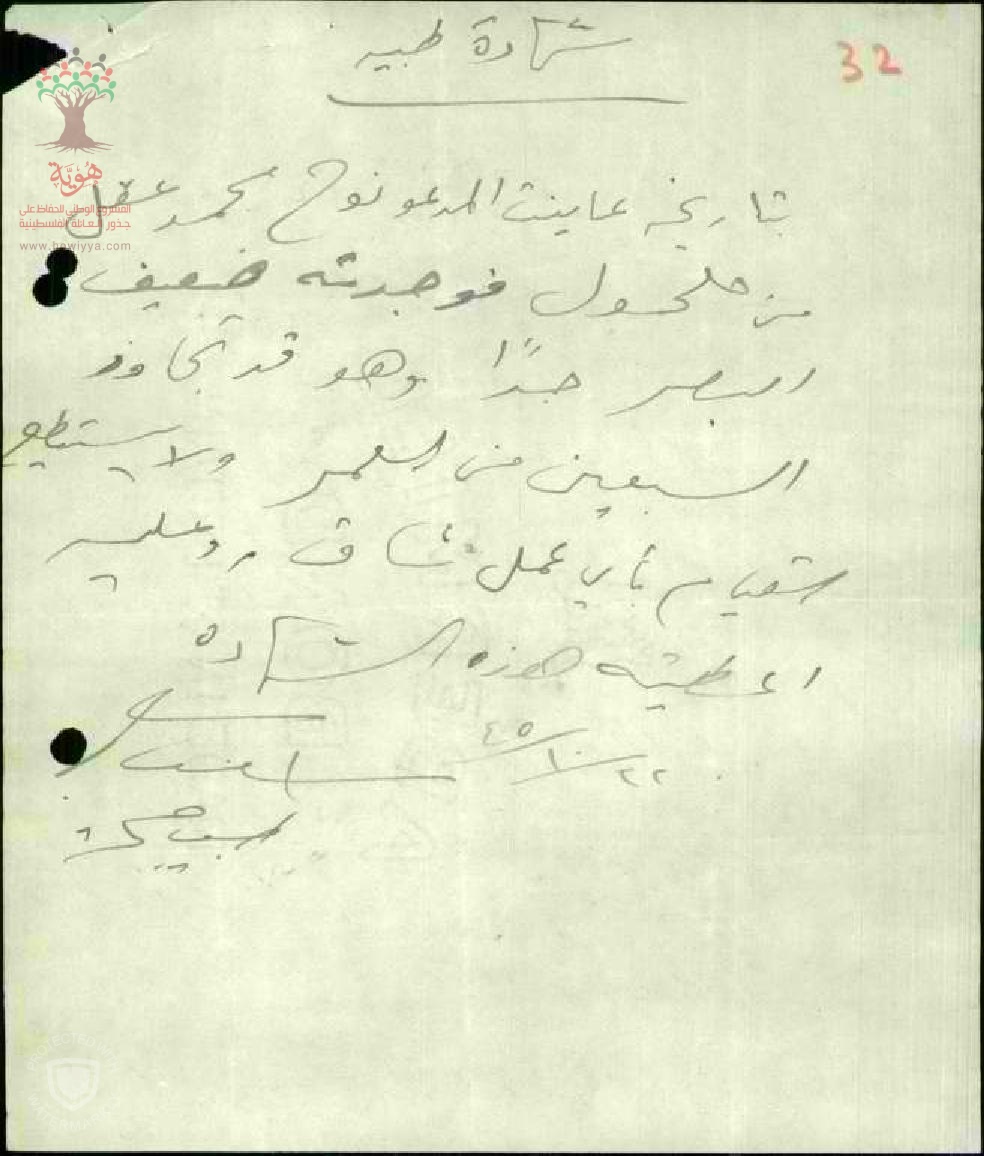 شهادة طبيه
32
بتاريخه عاينت المدعو نوح محمد عقل
من حلحول فوجدته ضعيف
البصر جدًا وهو قد تجاوز
السبعين من العمر ولا يستطيع
القيام بأي عمل شاق وعليه
اعطيته هذه الشهادة
٢٢/١٠/٤٥
طبيب صحة
هُوِيَّة
المشروع الوطني للحفاظ على
جذور العائلة الفلسطينية
www.howiyya.com